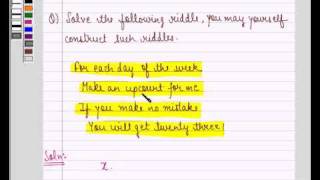 Q) Solve the following riddle, you may yourself
construct such riddles.
For each day of the week
Make an upcount for me
If you make no mistake
You will get twenty three!
Soln:
x.